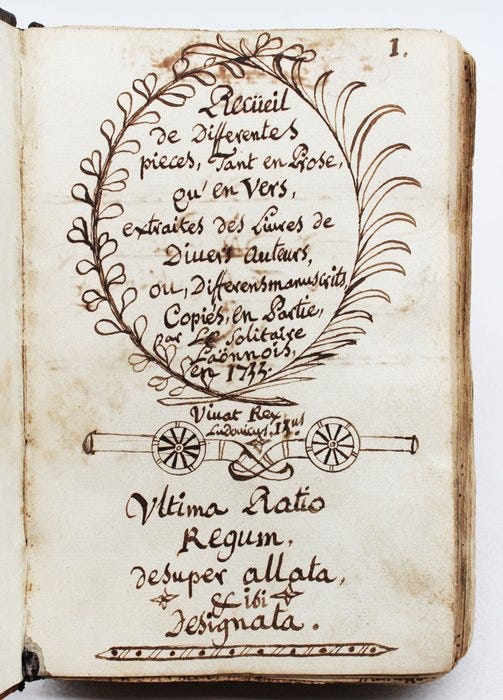 1.
Recüeil
de Differentes
pieces, Tant en Prose,
qu'en Vers,
extraites des Livres de
Divers Auteurs,
ou, Differens manuscrits,
Copiés, en Partie,
par Le Solitaire
Laönnois,
en 1733.
Vivat Rex
Ludovicus,
Ultima Ratio
Regum,
desuper allata,
& ibi
Designata.